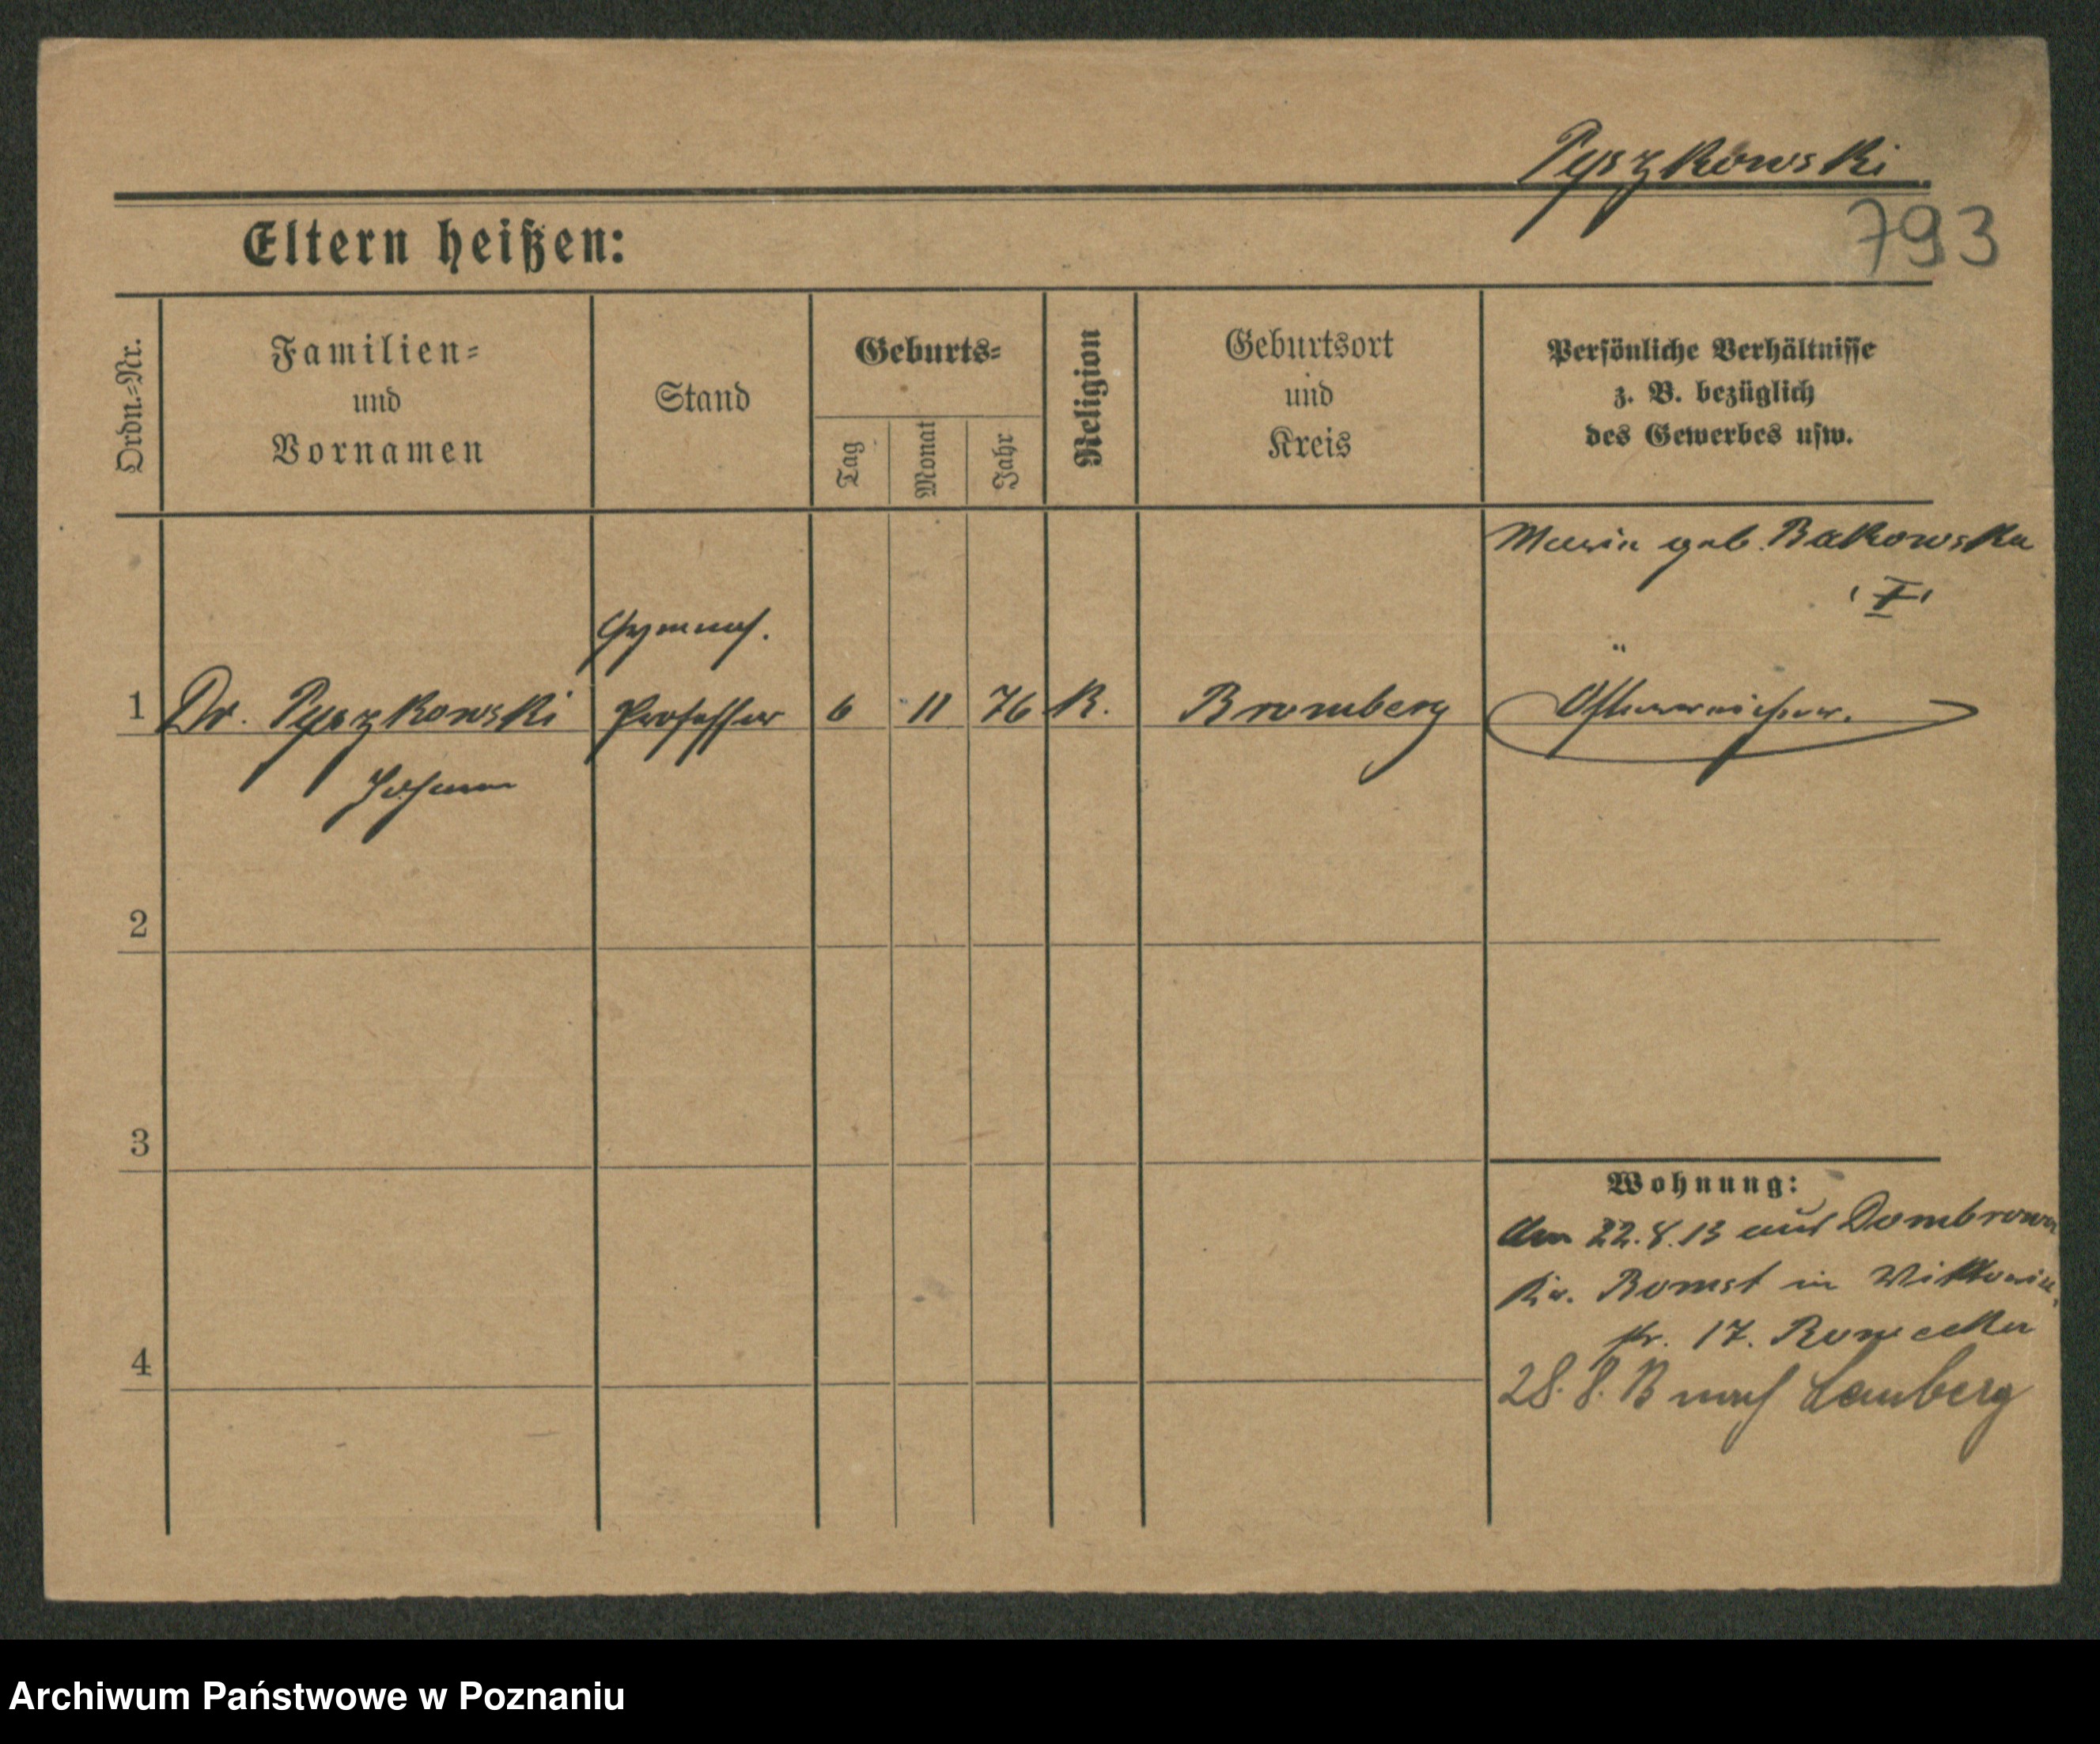 Pyszkowski
793
Eltern heißen:
Ordn.=Nr.
Familien=
und
Vornamen
Stand
Geburts=
Tag
Monat
Jahr
Religion
Geburtsort
und
Kreis
Persönliche Verhältnisse
z. B. bezüglich
des Gewerbes usw.
Maria geb. Bakowska
I
Gymnas.
1 Dr. Pyszkowski Professor 6 11 76 K. Bromberg Österreicher.
Johann
2
3
Wohnung:
Am 22.8.13 aus Dombrowo
Kr. Bomst in Wiktoria
str. 17.
4
28.8.13 nach Lemberg
Archiwum Państwowe w Poznaniu